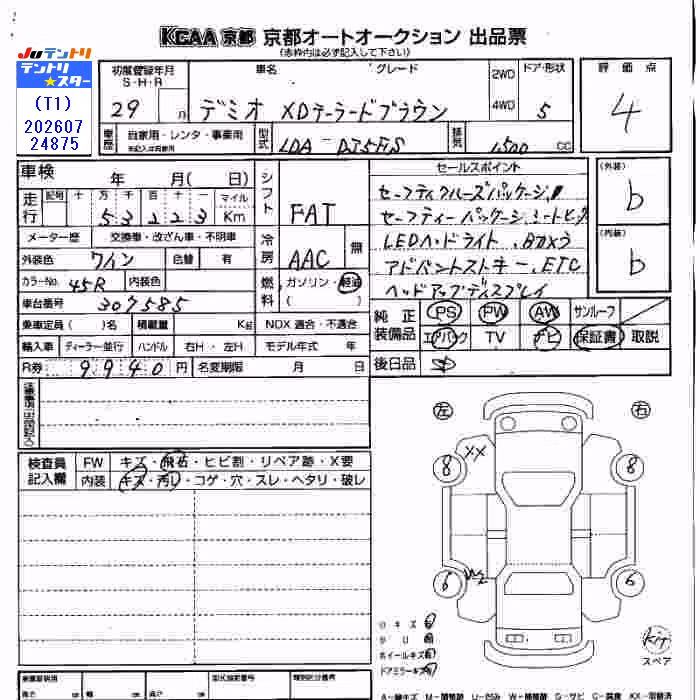 KCAA 京都 京都オートオークション 出品票
(赤枠内は必ず記入して下さい)
JUテントリ
テントリ★スター
(T1)
202607
24875
初度登録年月 S・H・R 29 月
車名 デミオ
グレード XDテーラードブラウン
2WD 4WD
ドア・形状 5
評価点 4
車歴 自家用・レンタ・事業用
未記入は自家用
型式 LDA-DJ5FS
排気 1500 CC
車検 年 月(日)
走行 記号 十 万 千 百 十 一 マイル Km
5 3 2 2 3
メーター歴 交換車・改ざん車・不明車
外装色 ワイン 色替 有
カラーNo. 45R 内装色
車台番号 307585
乗車定員 ( )名 積載量 Kg NOX 適合・不適合
輸入車 ディーラー・並行 ハンドル 右H・左H モデル年式 年
R券 9940 円 名変期限 月 日
シフト FAT
冷房 AAC 無
燃料 ガソリン・軽油
( )
セールスポイント
セーフティクルーズパッケージ
セーフティーパッケージ シートヒーター
LEDヘッドライト、Bカメラ
アドバンストキー、ETC
ヘッドアップディスプレイ
(外装) b
(内装) b
純正装備品 PS PW AW サンルーフ
エアバック TV ナビ 保証書 取説
後日品 SD
注意事項(出品店記入)
検査員記入欄 FW キズ・飛石・ヒビ割・リペア跡・X要
内装 キズ・汚れ・コゲ・穴・スレ・ヘタリ・破レ
左 右
XX
8 8
W2
6 6
小キズ有
ホイールキズ有
ドアミラーキズ有
Kit
スペア